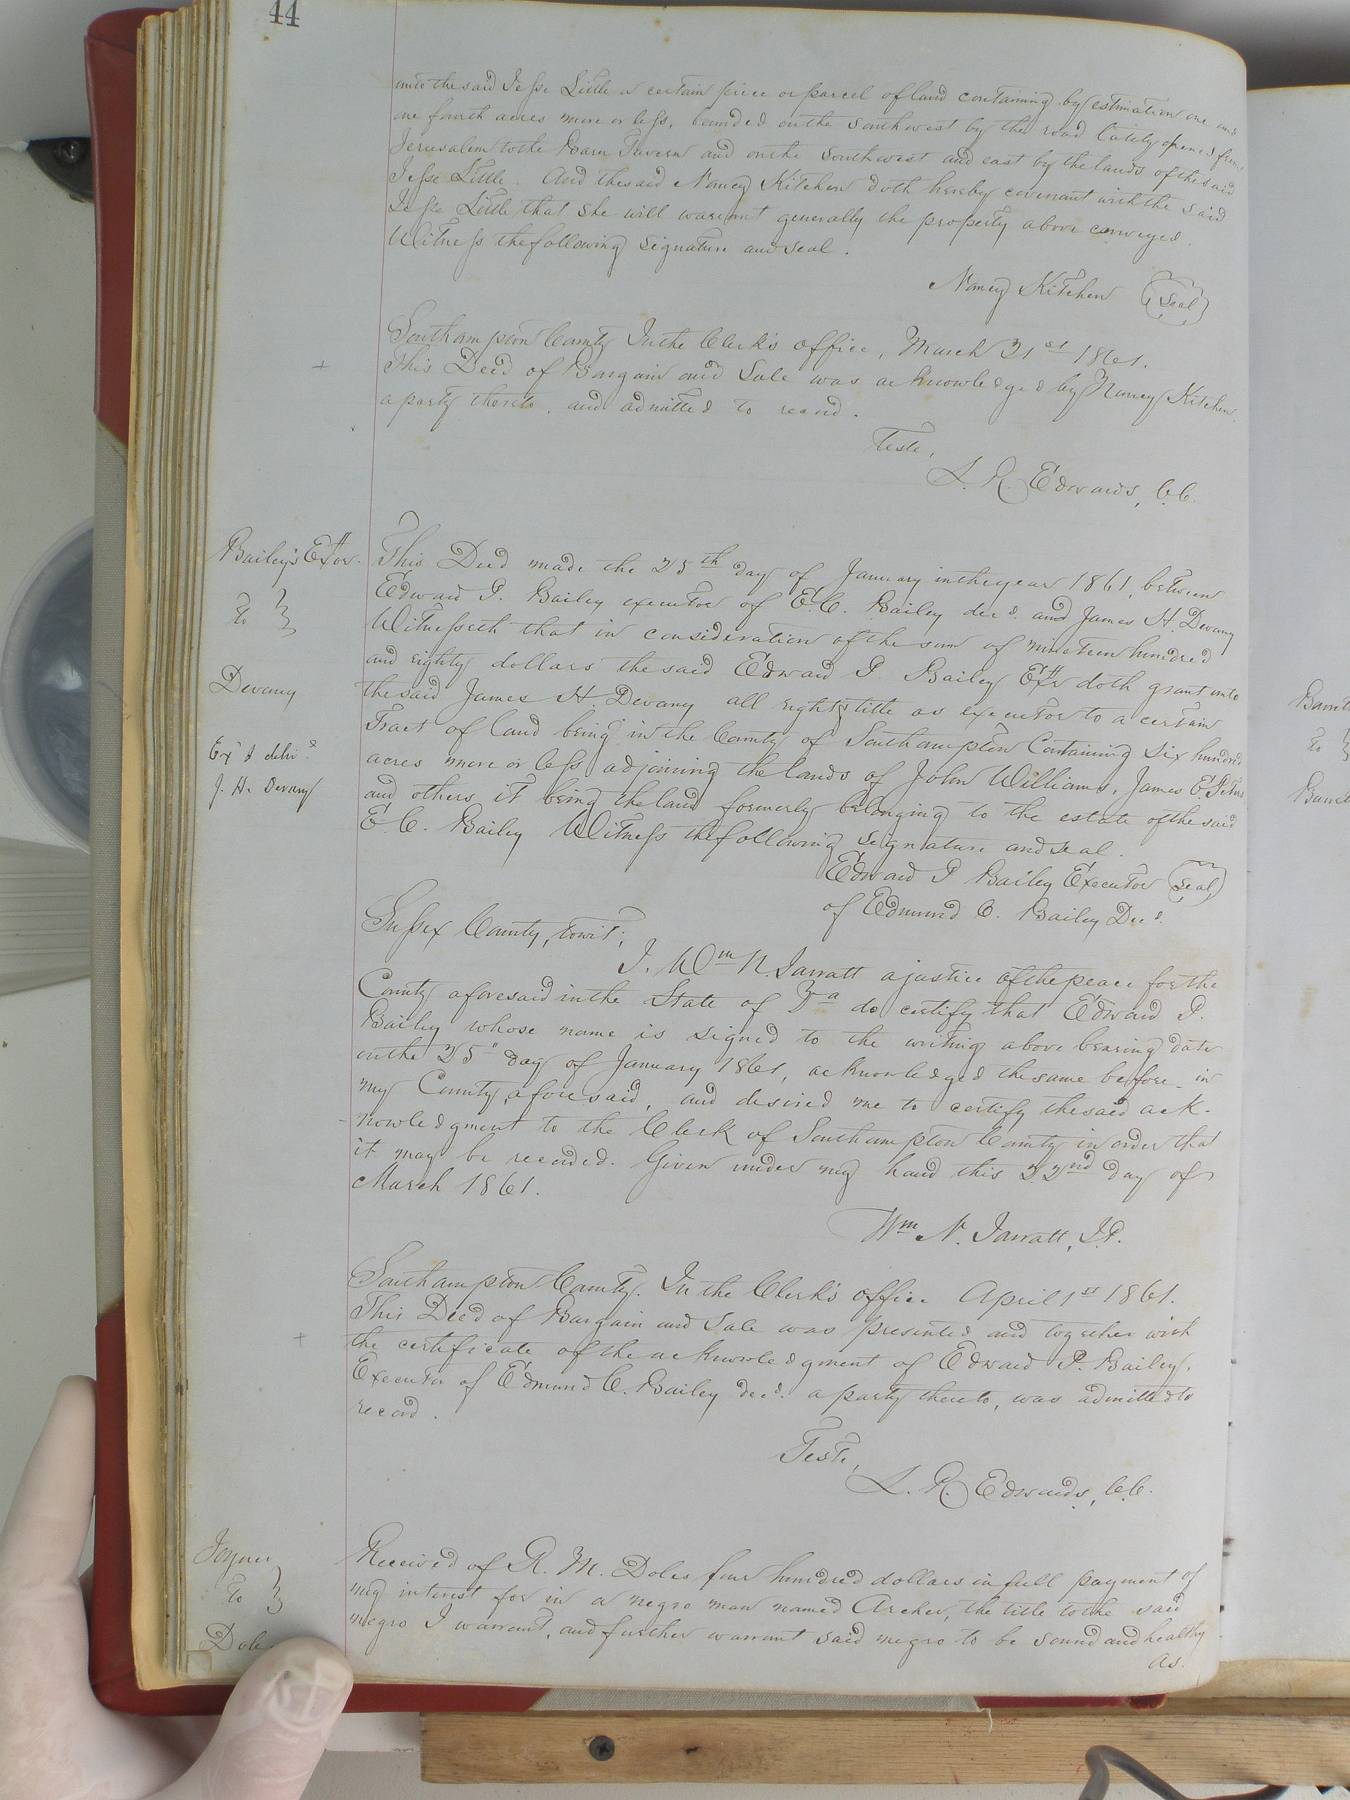 44
unto the said Jesse Little a certain piece or parcel of land containing by estimation one and
one fourth acres more or less, bounded on the southwest by the road lately opened from
Jerusalem to the Barn Tavern and on the southwest and east by the lands of the said
Jesse Little. And the said Nancy Kitchen doth hereby covenant with the said
Jesse Little that she will warrant generally the property above conveyed.
Witness the following signature and seal.
Nancy Kitchen (Seal)
Southampton County In the Clerk's office, March 31st 1861.
This Deed of Bargain and Sale was acknowledged by Nancy Kitchen
a party thereto, and admitted to record.
Teste,
L. R. Edwards, C.C.
Bailey's Exor.
to
Devany
Exd & delivd
J. H. Devany
This Deed made the 25th day of January in the year 1861, between
Edward P. Bailey executor of E. C. Bailey decd. and James H. Devany
Witnesseth that in consideration of the sum of nineteen hundred
and eighty dollars the said Edward P. Bailey Exr doth grant unto
the said James H. Devany all right & title as executor to a certain
Tract of land being in the County of Southampton Containing six hundred
acres more or less adjoining the lands of John Williams, James E.
and others it being the land formerly belonging to the estate of the said
E. C. Bailey Witness the following signature and seal.
Edward P Bailey Executor (seal)
of Edmund C. Bailey Decd.
Sussex County, towit;
I. Wm N. Jarratt a justice of the peace for the
County aforesaid in the State of Va do certify that Edward P.
Bailey whose name is signed to the writing above bearing date
on the 25" day of January 1861, acknowledged the same before in
my County aforesaid, and desired me to certify the said ack-
nowledgment to the Clerk of Southampton County in order that
it may be recorded. Given under my hand this 22nd day of
March 1861.
Wm N. Jarratt, J.P.
Southampton County. In the Clerk's office April 1st 1861.
This Deed of Bargain and Sale was presented and together with
the certificate of the acknowledgment of Edward P. Bailey.
Executor of Edmund C. Bailey decd. a party thereto, was admitted to
record.
Teste,
L. R. Edwards, C.C.
Joyner
to
Doles
Received of R. M. Doles four hundred dollars in full payment of
my interest for in a negro man named Archer, the title to the said
negro I warrant, and further warrant said negro to be sound and healthy
as.
to